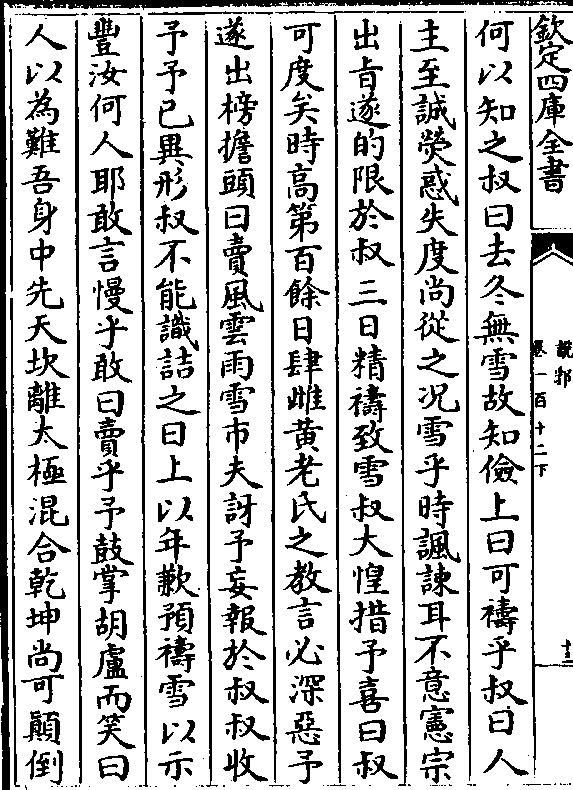 欽定四庫全書
說郛
卷一百十二下
十三
何以知之叔曰去冬無雪故知儉上曰可禱乎叔曰人
主至誠熒惑失度尚從之況雪乎時諷諫耳不意憲宗
出㫖遂的限於叔三日精禱致雪叔大惶措予喜曰叔
可度矣時高第百餘日肆雌黄老氏之教言必深惡予
遂出榜擔頭曰賣風雲雨雪市夫訝予妄報於叔叔收
予予已異形叔不能識詰之曰上以年歉預禱雪以示
豐汝何人耶敢言慢乎敢曰賣乎予鼓掌胡盧而笑曰
人以為難吾身中先天坎離太極混合乾坤尚可顚倒